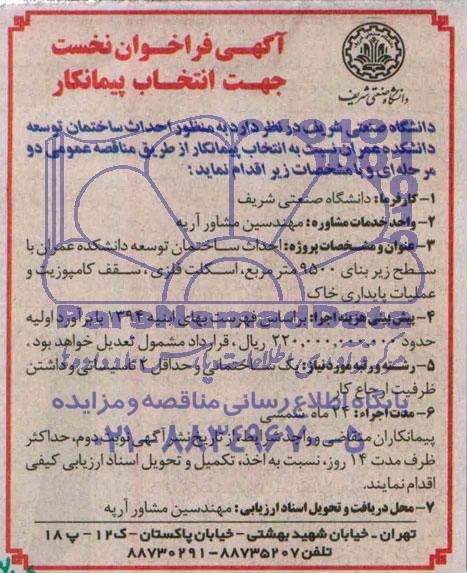 آگهی فراخوان نخست
جهت انتخاب پیمانکار
دانشگاه صنعتی شریف
دانشگاه صنعتی شریف در نظر دارد به منظور احداث ساختمان توسعه
دانشکده عمران نسبت به انتخاب پیمانکار از طریق مناقصه عمومی دو
مرحله‌ای و با مشخصات زیر اقدام نماید:
۱- کارفرما: دانشگاه صنعتی شریف
۲- واحد خدمات مشاوره: مهندسین مشاور آریه
۳- عنوان و مشخصات پروژه: احداث ساختمان توسعه دانشکده عمران با
سطح زیر بنای ۹۵۰۰ متر مربع، اسکلت فلزی، سقف کامپوزیت و
عملیات پایداری خاک
۴- پیش بینی هزینه اجرا: براساس فهرست بهای ابنیه ۱۳۹۴ با برآورد اولیه
حدود ۲۲۰,۰۰۰,۰۰۰,۰۰۰ ریال، قرارداد مشمول تعدیل خواهد بود.
۵- رشته و رتبه مورد نیاز: یک ساختمان و حداقل ۲ تاسیسات و داشتن
ظرفیت ارجاع کار
۶- مدت اجراء: ۲۴ ماه شمسی
پیمانکاران متقاضی و واجد شرایط، از تاریخ نشر آگهی نوبت دوم، حداکثر
ظرف مدت ۱۴ روز، نسبت به اخذ، تکمیل و تحویل اسناد ارزیابی کیفی
اقدام نمایند.
۷- محل دریافت و تحویل اسناد ارزیابی: مهندسین مشاور آریه
تهران - خیابان شهید بهشتی - خیابان پاکستان - ک ۱۲ - پ ۱۸
تلفن ۸۸۷۳۵۲۰۷-۸۸۷۳۰۲۹۱
ParsNamadData
پایگاه اطلاع رسانی مناقصه و مزایده
۰۲۱-۸۸۳۴۹۶۷۰-۵